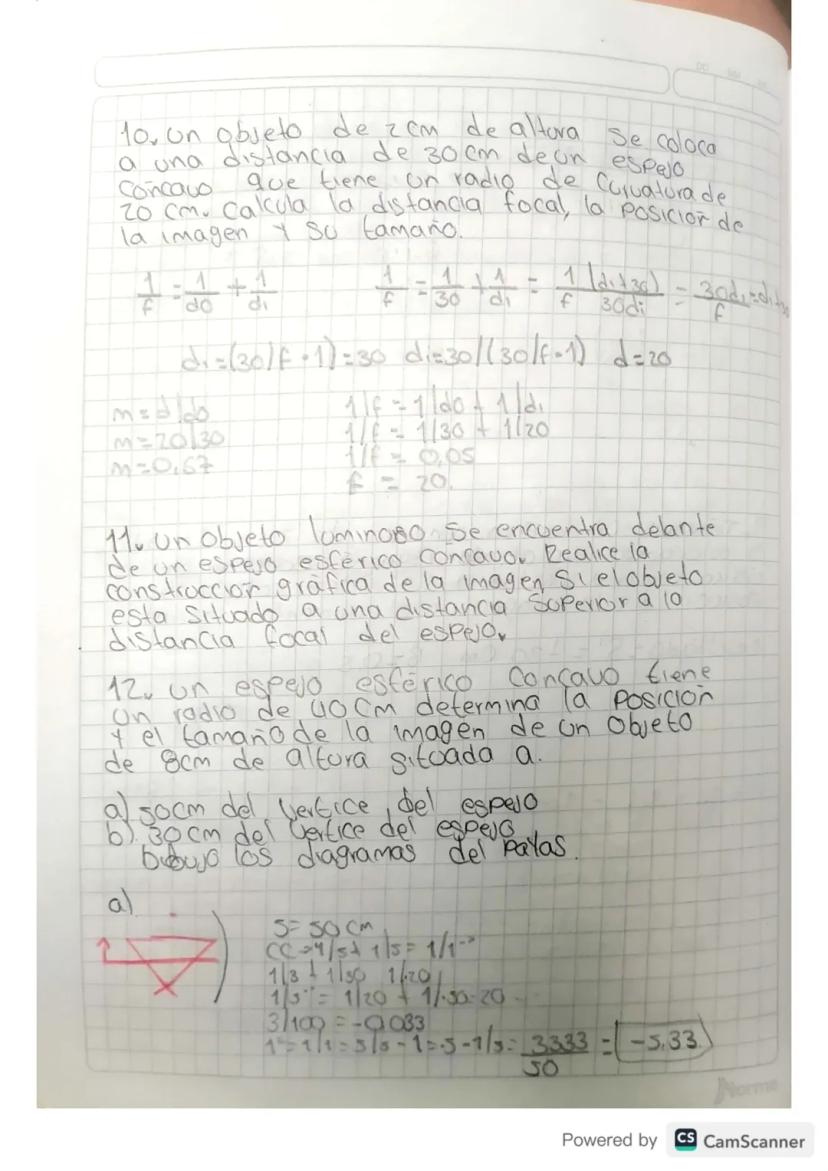 10. un objeto de 2cm de altura se coloca
a una distancia de 30cm de un espejo
concavo que tiene un radio de curvatura de
20 cm. calcula la distancia focal, la posicior de
la imagen y su tamaño.
1/f = 1/do + 1/di 1/f = 1/30 + 1/di = 1/f (di+30)/30di = 30di/f = di+30
di=(30/f-1)=30 di=30/(30/f-1) d=20
m=d/do 1/f = 1/do + 1/di
m=20/30 1/f = 1/30 + 1/20
m=0,67 1/f = 0,05
f = 20.
11. un objeto luminoso se encuentra delante
de un espejo esférico concavo. Realice la
construccior gráfica de la imagen, si el objeto
esta situado a una distancia superior a la
distancia focal del espejo.
12. un espejo esférico concavo tiene
un radio de 40cm determina la posicion
y el tamaño de la imagen de un objeto
de 8cm de altura situada a.
a) 50cm del vertice del espejo
b). 30cm del vertice del espejo
los diagramas del rayas.
a)
s= 50cm
1/3 + 1/50 1/20
= 1/20 +
3/100 = -0.033
= 3333/50 = -5.33
Norma
Powered by CS CamScanner